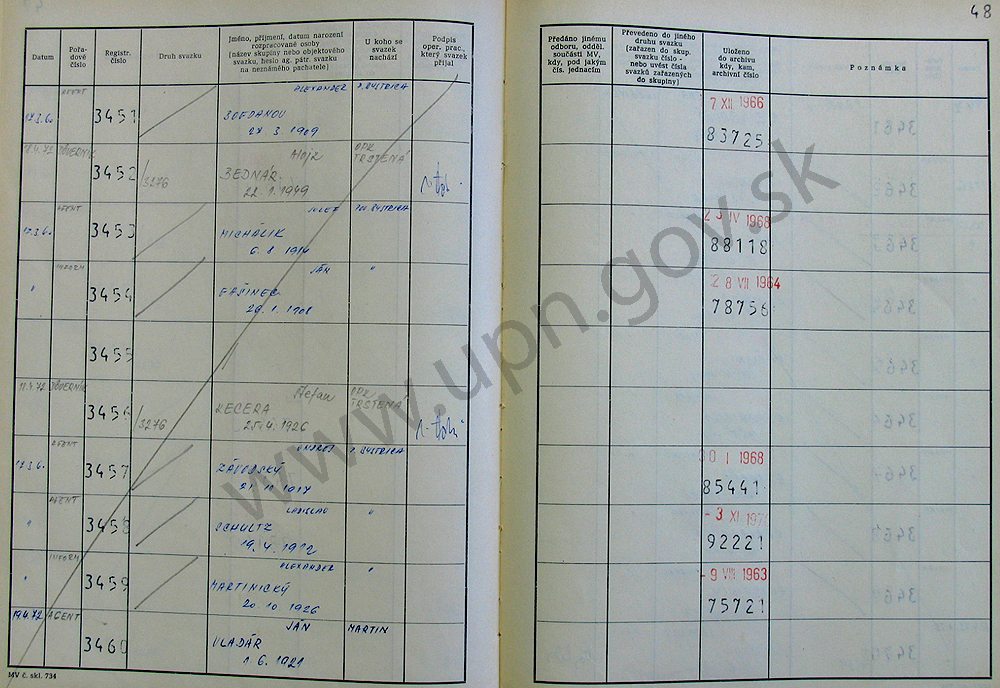 48
Datum
Pořadové číslo
Registr. číslo
Druh svazku
Jméno, příjmení, datum narození rozpracované osoby (název skupiny nebo objektového svazku, heslo ag. pátr. svazku na neznámého pachatele)
U koho se svazek nachází
Podpis oper. prac., který svazek přijal
Předáno jinému odboru, odděl. součásti MV, kdy, pod jakým čís. jednacím
Převedeno do jiného druhu svazku (zařazen do skup. svazku číslo - nebo uvést čísla svazků zařazených do skupiny)
Uloženo do archivu kdy, kam, archivní číslo
Poznámka
AGENT ALEXANDER P. BYSTRICA
3451
27. 3. 1909
7 XII 1966
83725
18.4.72 DÔVERNÍK Alojz OPK TRSTENÁ
3452 /3276 BEDNÁR
22. 1. 1949
AGENT JOZEF POV. BYSTRICA
17.3.6. 3453 MICHALÍK
IV 1968
88118
INFORM JÁN "
" 3454
78756
28 VII 1964
3455
18.4.72 DÔVERNÍK Štefan OPK TRSTENÁ
3456 /3276 KECERA
25. 4. 1926
AGENT ONDREJ P. BYSTRICA
17.3.6. 3457 ZÁVODSKÝ
21. 10. 1917
I 1968
85441
AGENT LADISLAV "
" 3458 SCHULTZ
19. 4. 1922
- 3 XI
92221
INFORM ALEXANDER "
" 3459 MARTINICKÝ
20 10 1926
- 9 VIII 1963
75721
19.4.72 AGENT JÁN MARTIN
3460 VLADÁR
1. 6. 1921
MV č. skl. 734
www.upn.gov.sk